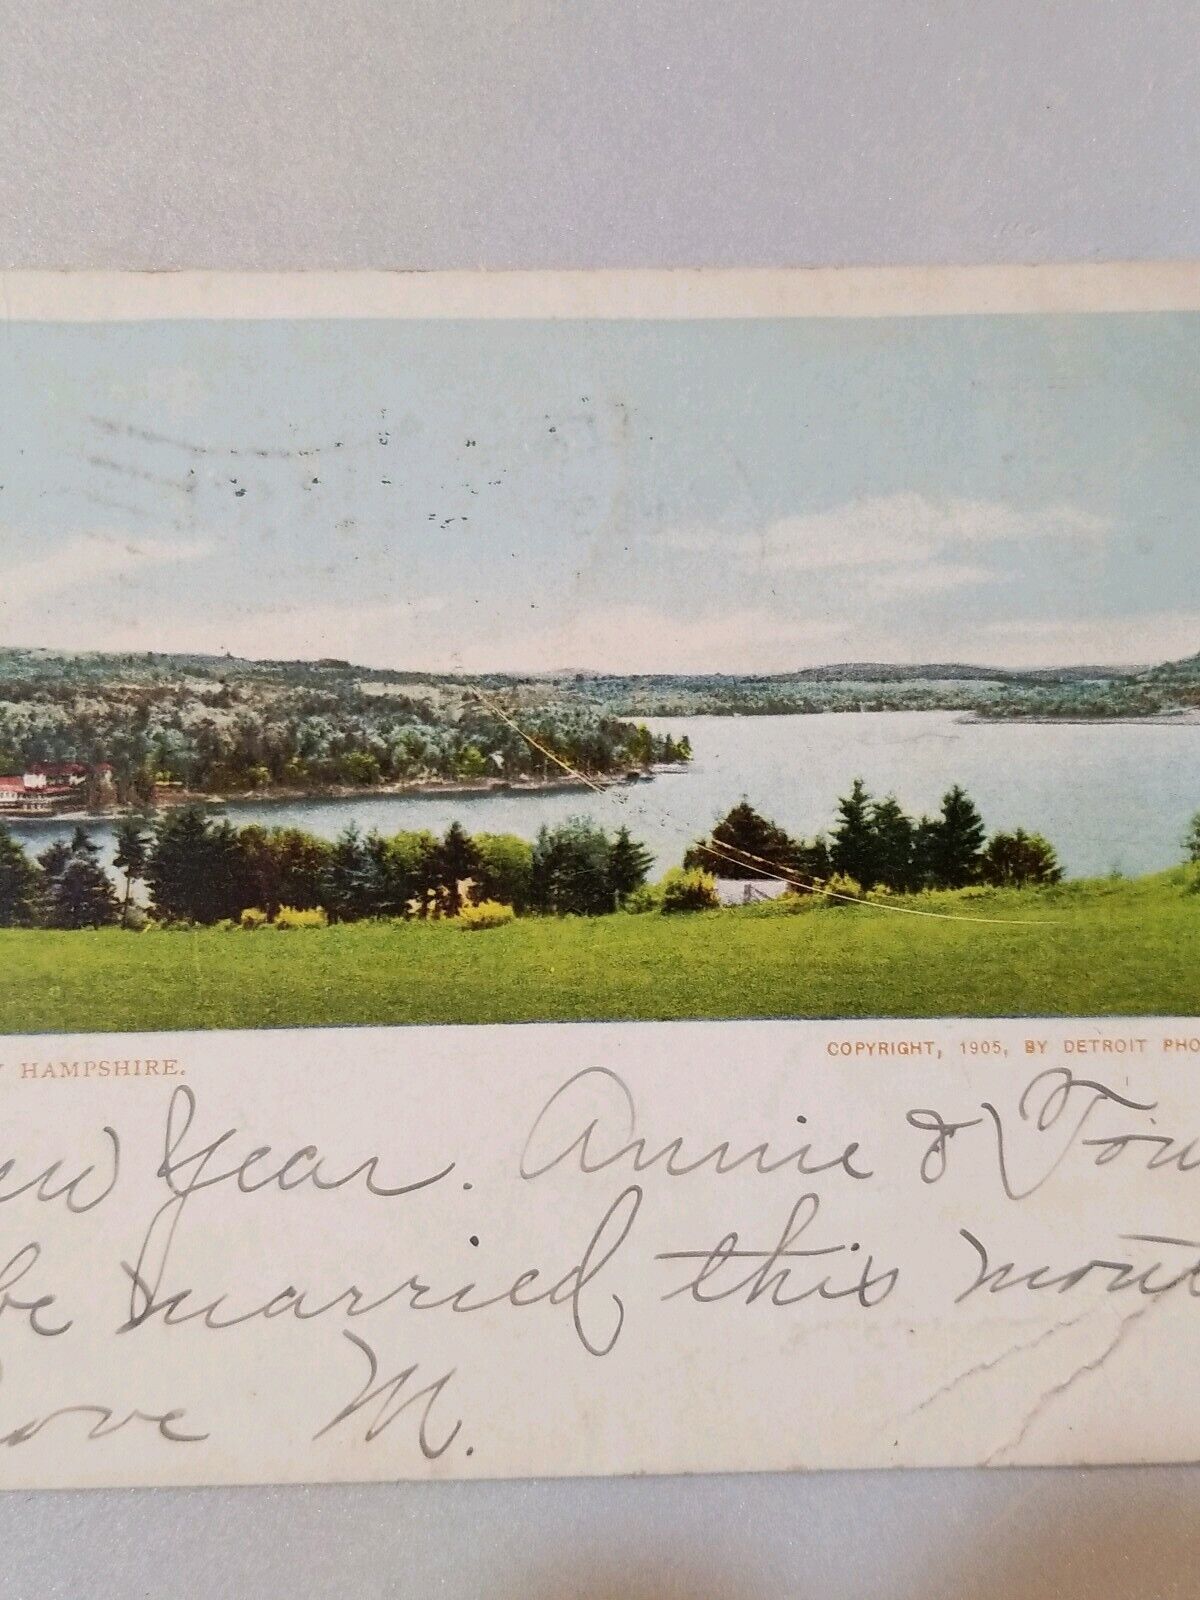 HAMPSHIRE. COPYRIGHT, 1905, BY DETROIT PHO
ew Year. Annie & Tom
be married this mont
ove M.